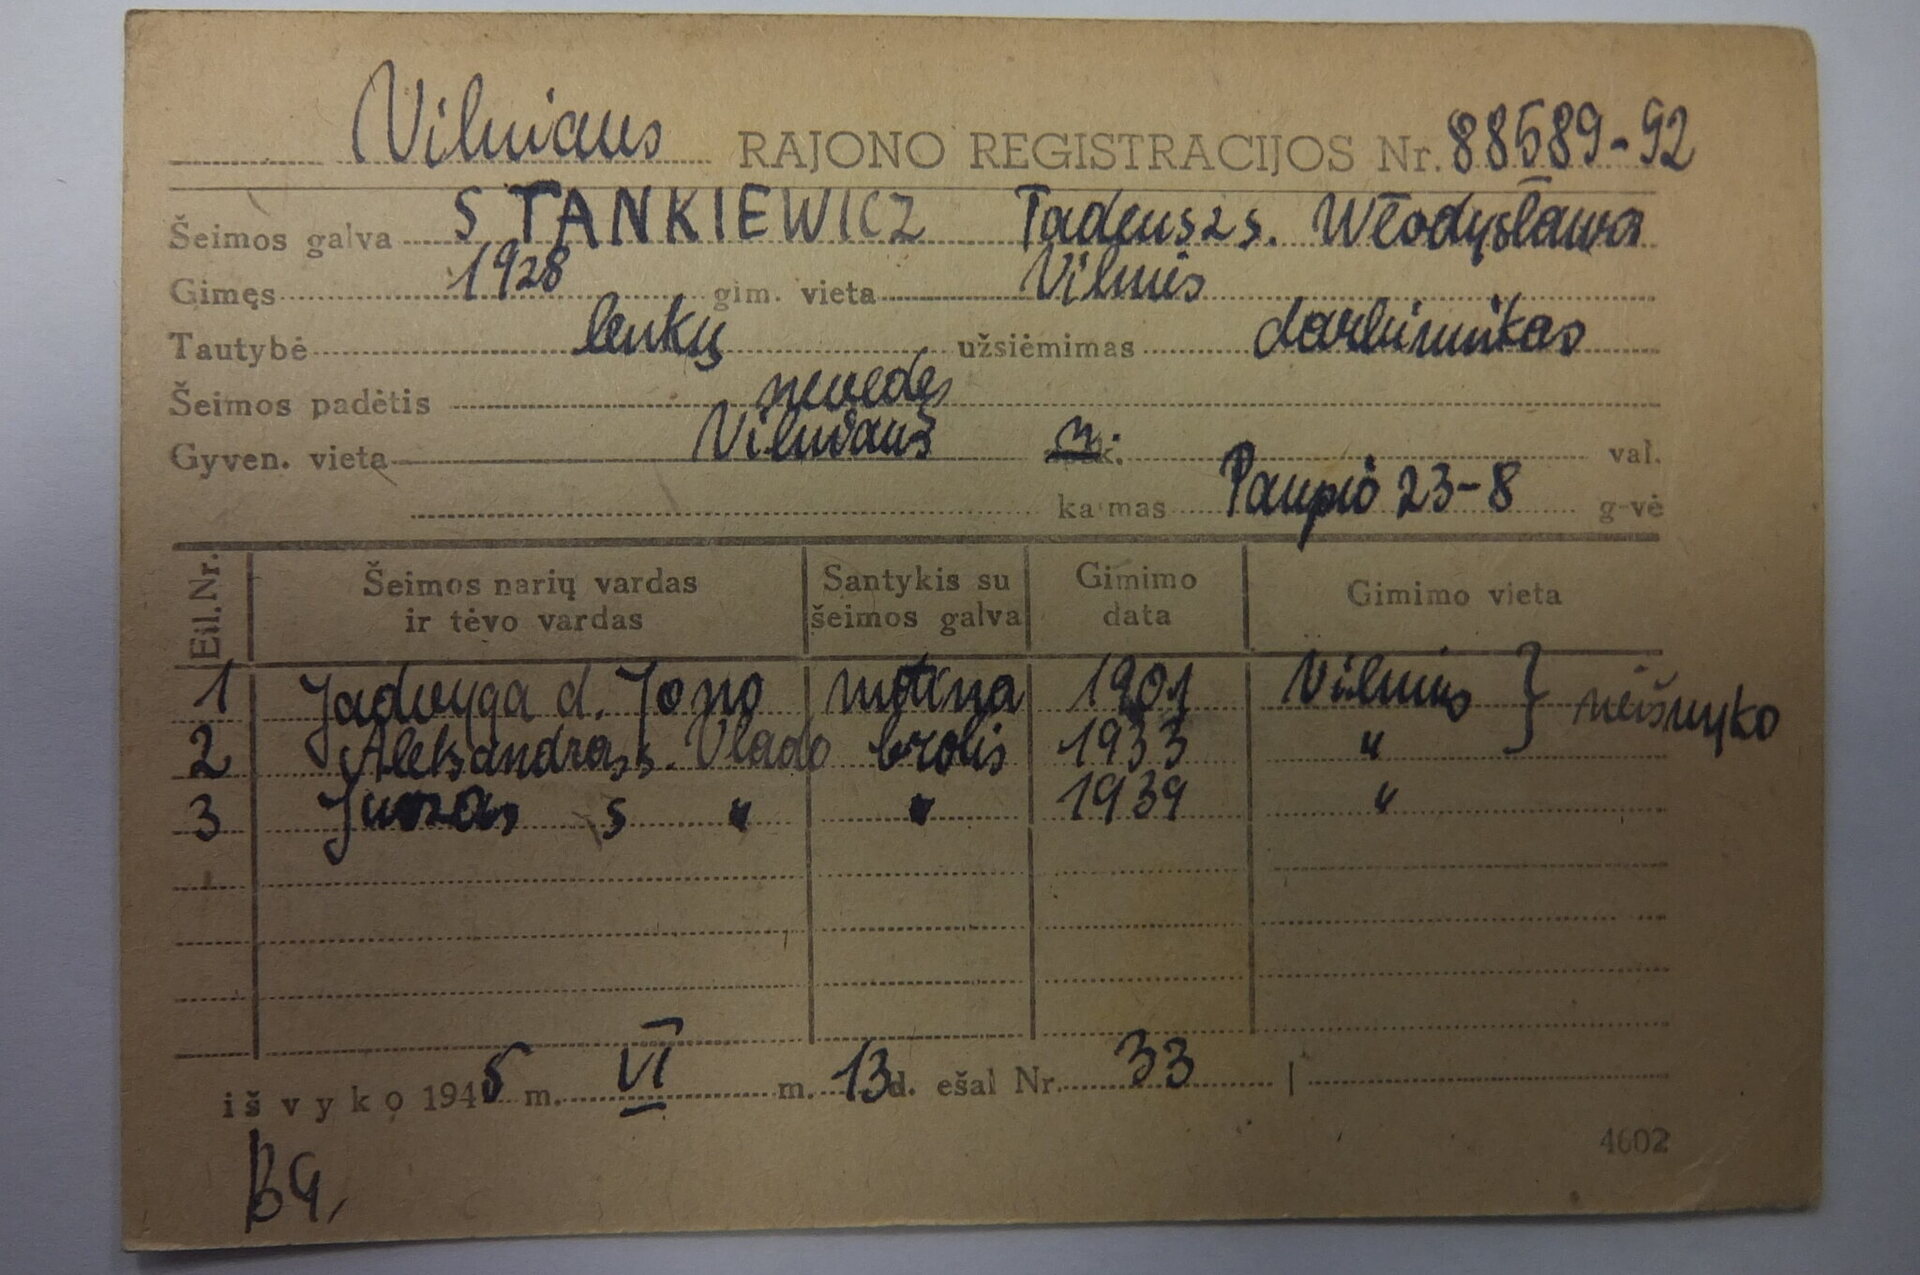 Vilniaus RAJONO REGISTRACIJOS Nr. 88589-92
Šeimos galva STANKIEWICZ Tadeusz s. Włodysława
Gimęs 1928 gim. vieta Vilnius
Tautybė lenkų užsiėmimas darbininkas
Šeimos padėtis nevedęs
Gyven. vieta Vilniaus m. val.
kaimas Paupio 23-8 g-vė
Eil. Nr. Šeimos narių vardas ir tėvo vardas Santykis su šeimos galva Gimimo data Gimimo vieta
1 Jadvyga d. Jono motina 1901 Vilnius } neišvyko
2 Aleksandras s. Vlado brolis 1933 "
3 Juozas s " " 1939 "
išvyko 1945 m. VI m. 13 d. ešal Nr. 33
4602